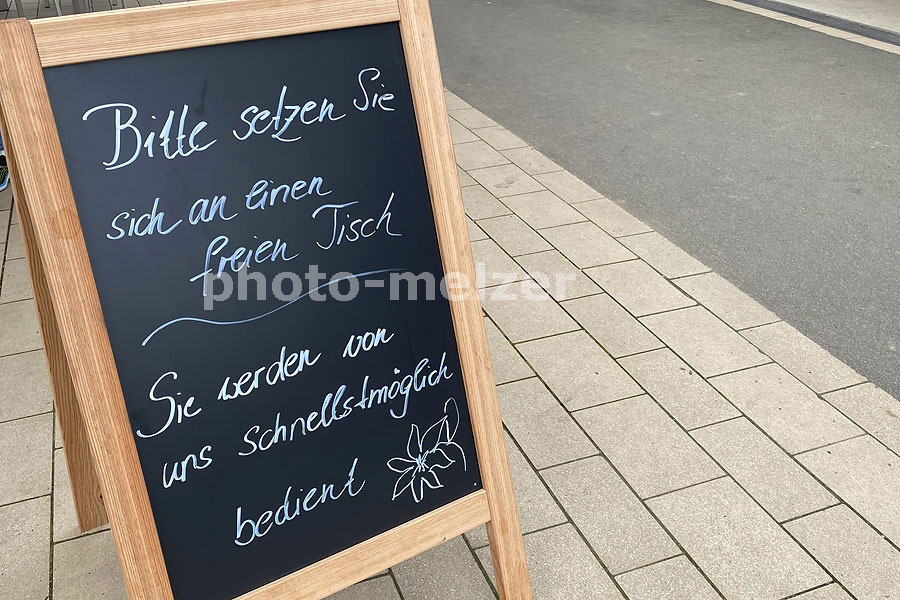 Bitte setzen Sie
sich an einen
freien Tisch
photo-melzer
Sie werden von
uns schnellstmöglich
bedient